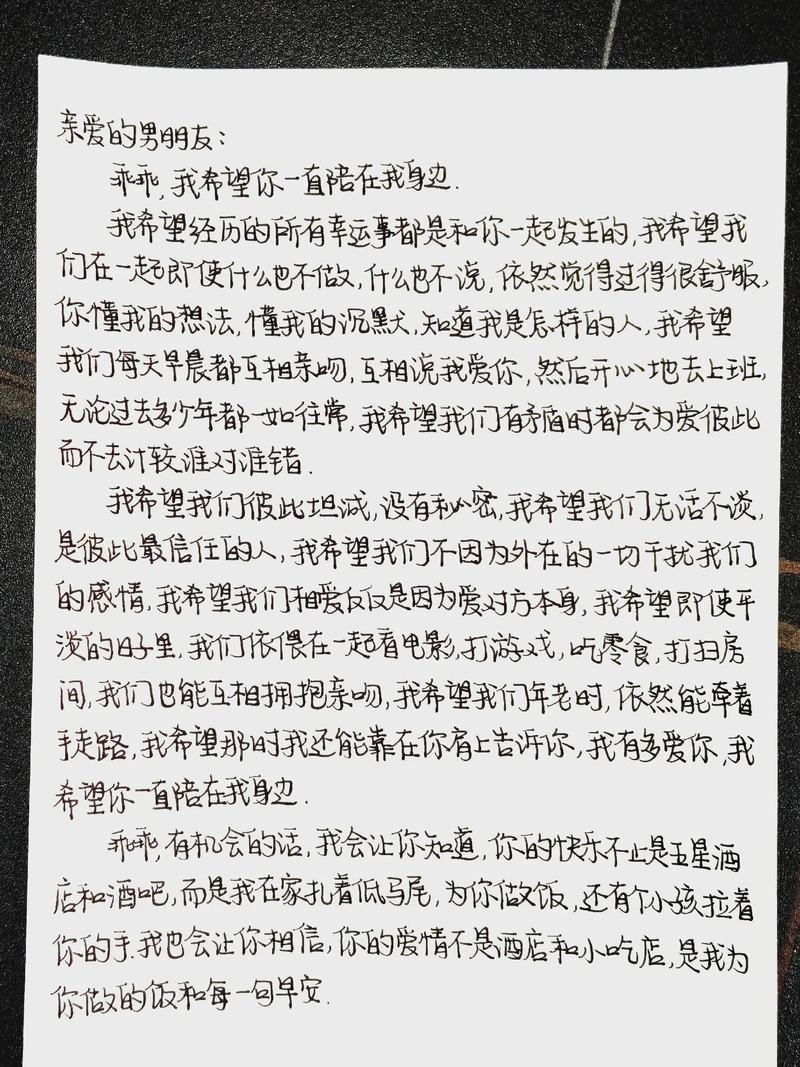 亲爱的男朋友：
乖乖,我希望你一直陪在我身边.
我希望经历的所有幸运事都是和你一起发生的,我希望我
们在一起即使什么也不做,什么也不说,依然觉得过得很舒服,
你懂我的想法,懂我的沉默,知道我是怎样的人,我希望
我们每天早晨都互相亲吻,互相说我爱你,然后开心地去上班,
无论过去多少年都一如往常,我希望我们有矛盾时都会为爱彼此
而不去计较谁对谁错.
我希望我们彼此坦诚,没有秘密,我希望我们无话不谈,
是彼此最信任的人,我希望我们不因为外在的一切干扰我们
的感情,我希望我们相爱仅仅是因为爱对方本身,我希望即使平
淡的日子里,我们依偎在一起看电影,打游戏,吃零食,打扫房
间,我们也能互相拥抱亲吻,我希望我们年老时,依然能牵着
手走路,我希望那时我还能靠在你肩上告诉你,我有多爱你,我
希望你一直陪在我身边.
乖乖,有机会的话,我会让你知道,你的快乐不止是五星酒
店和酒吧,而是我在家扎着低马尾,为你做饭,还有个小孩拉着
你的手.我也会让你相信,你的爱情不是酒店和小吃店,是我为
你做的饭和每一句早安.